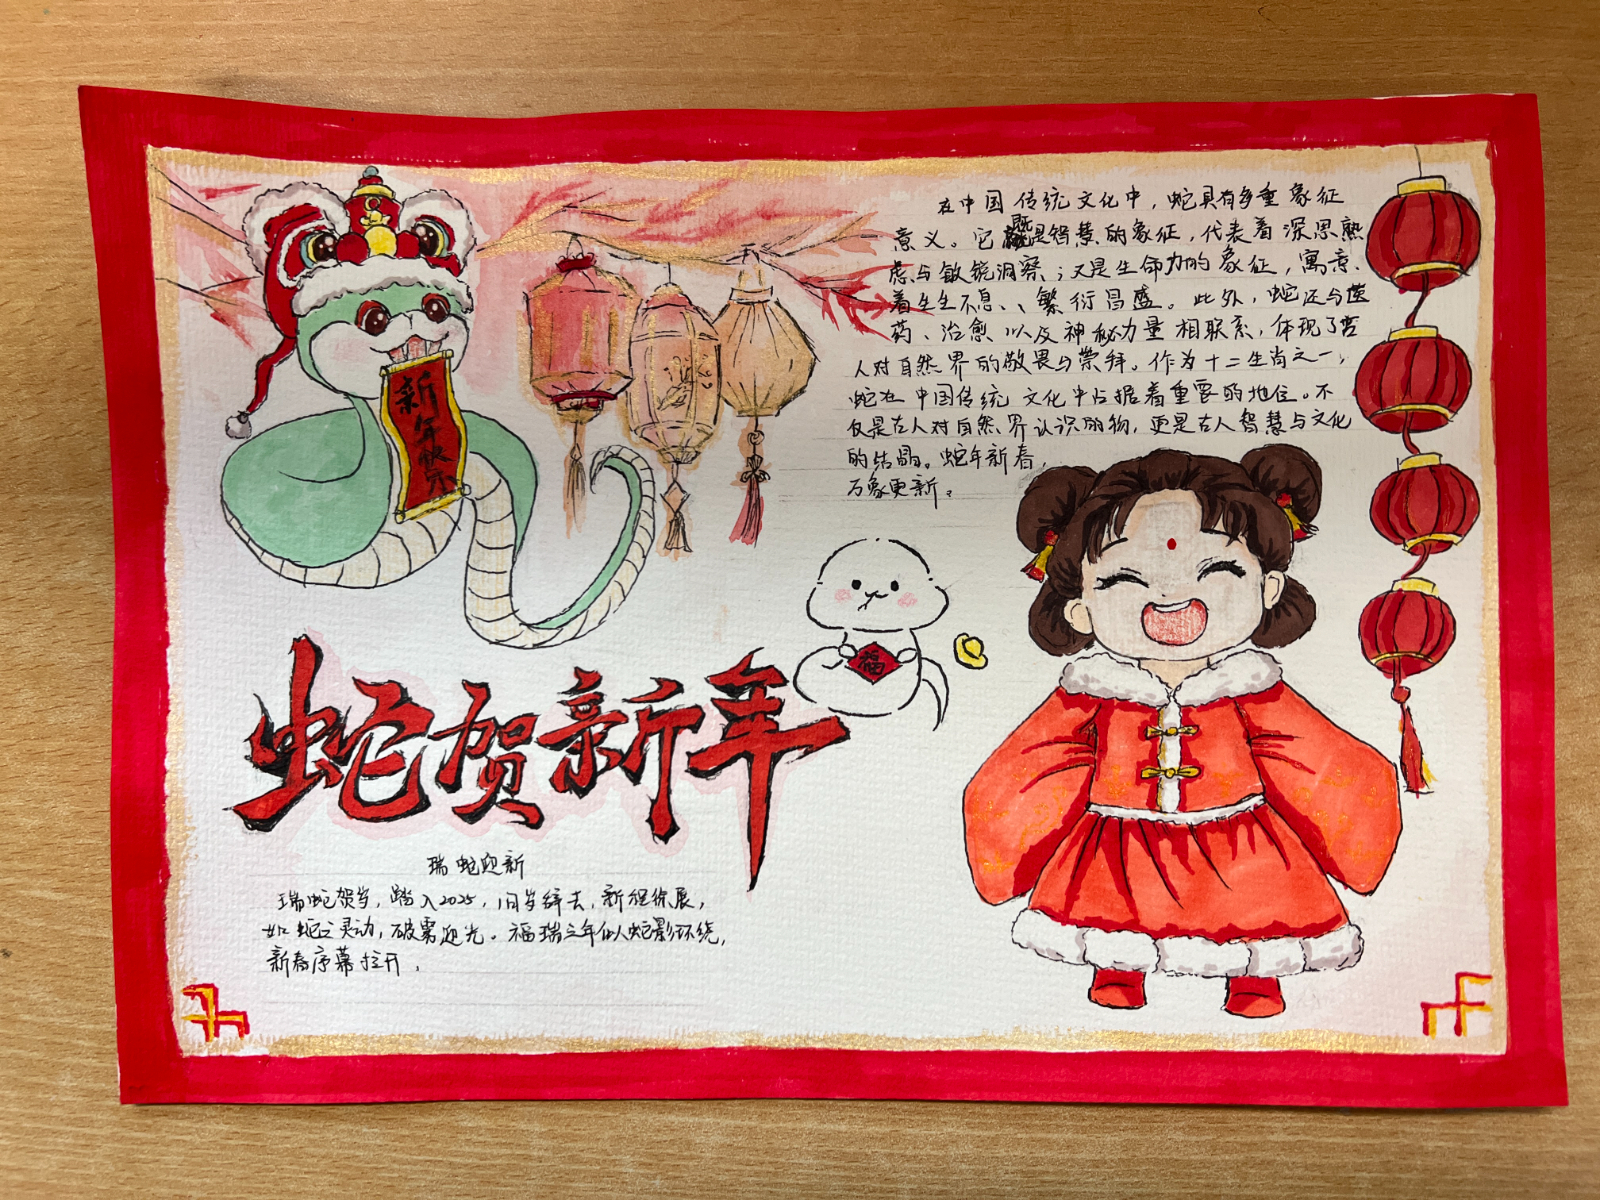 新年快乐
在中国传统文化中，蛇具有多重象征
意义。它既是智慧的象征，代表着深思熟
虑与敏锐洞察；又是生命力的象征，寓意
着生生不息、繁衍昌盛。此外，蛇还与医
药、治愈以及神秘力量相联系，体现了古
人对自然界的敬畏与崇拜。作为十二生肖之一，
蛇在中国传统文化中占据着重要的地位。不
仅是古人对自然界认识的物，更是古人智慧与文化
的结晶。蛇年新春，
万象更新。
福
蛇贺新年
瑞蛇迎新
瑞蛇贺岁，踏入2025，旧岁辞去，新程徐展，
如蛇之灵动，破雾迎光。福瑞之年似从蛇影环绕，
新春序幕拉开，